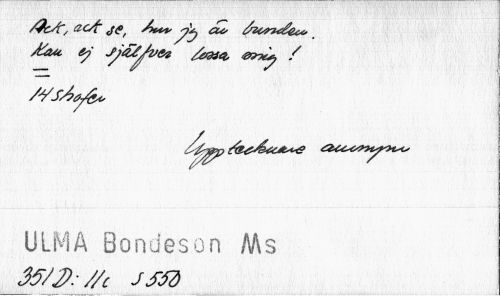 Ack, ack se, hur jag är bunden.
Kan ej självfver lossa mig!
=
14 strofer
Upptecknare anonym
ULMA Bondeson Ms
351 D: 11c s 550